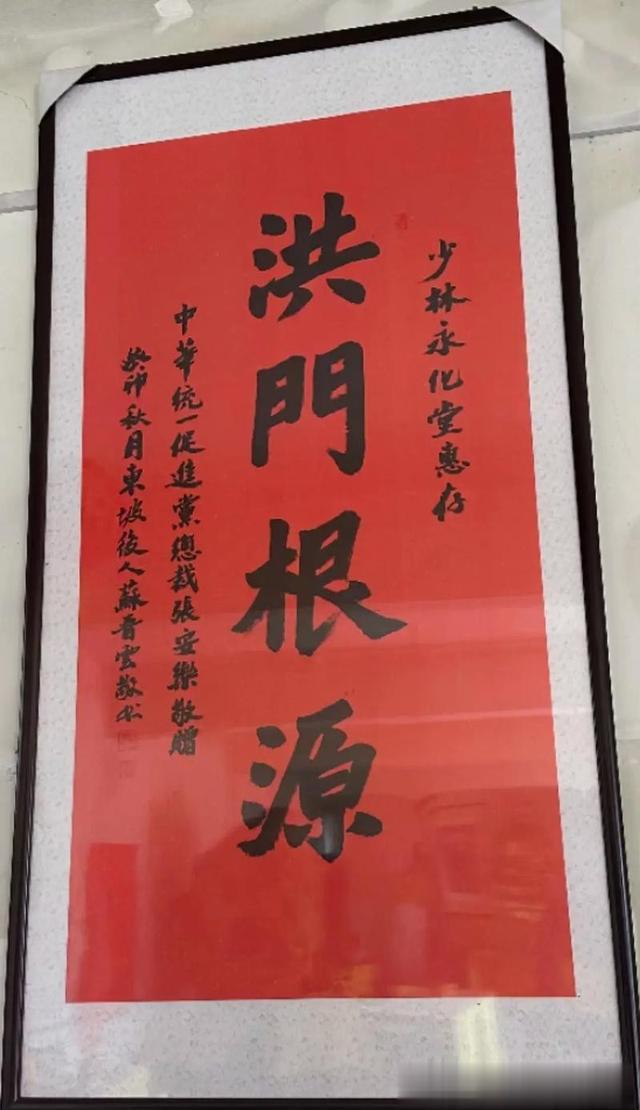 少林永化堂惠存
洪門根源
中華統一促進黨總裁張安樂敬贈
癸卯秋月東坡後人蘇晋雲敬书